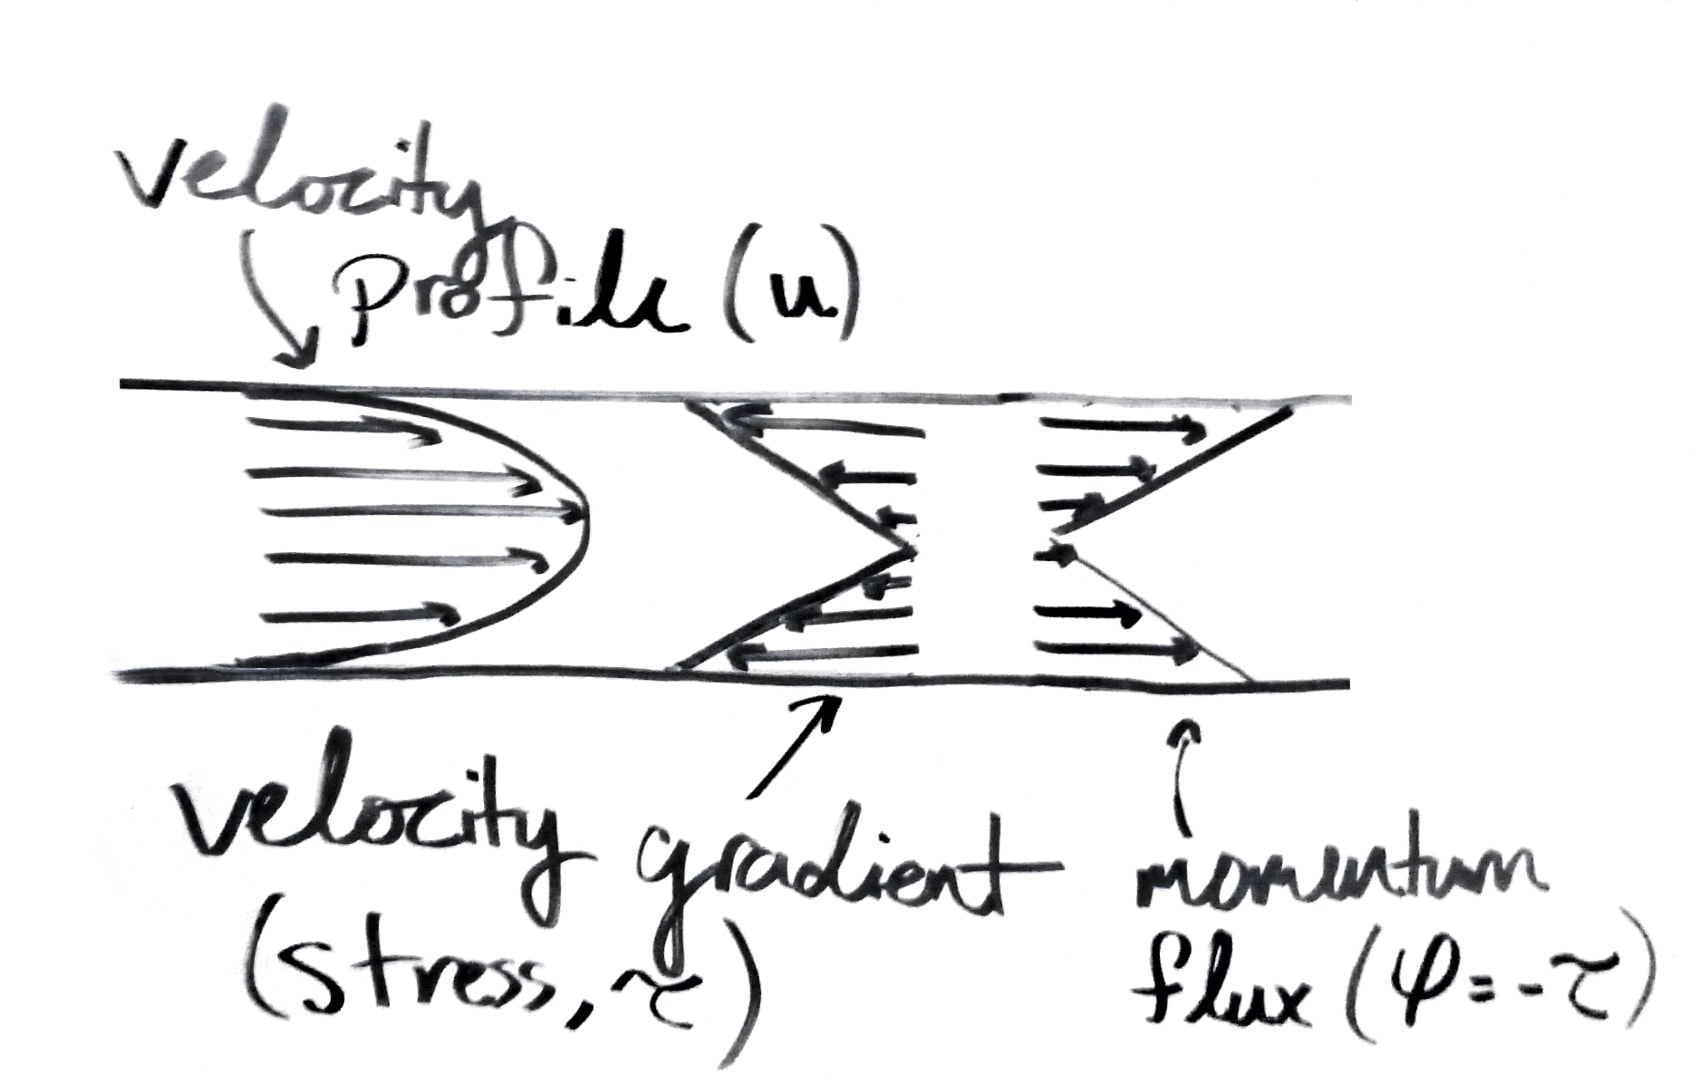 velocity
profile (u)
velocity gradient
(stress, τ)
momentum
flux (φ=-τ)